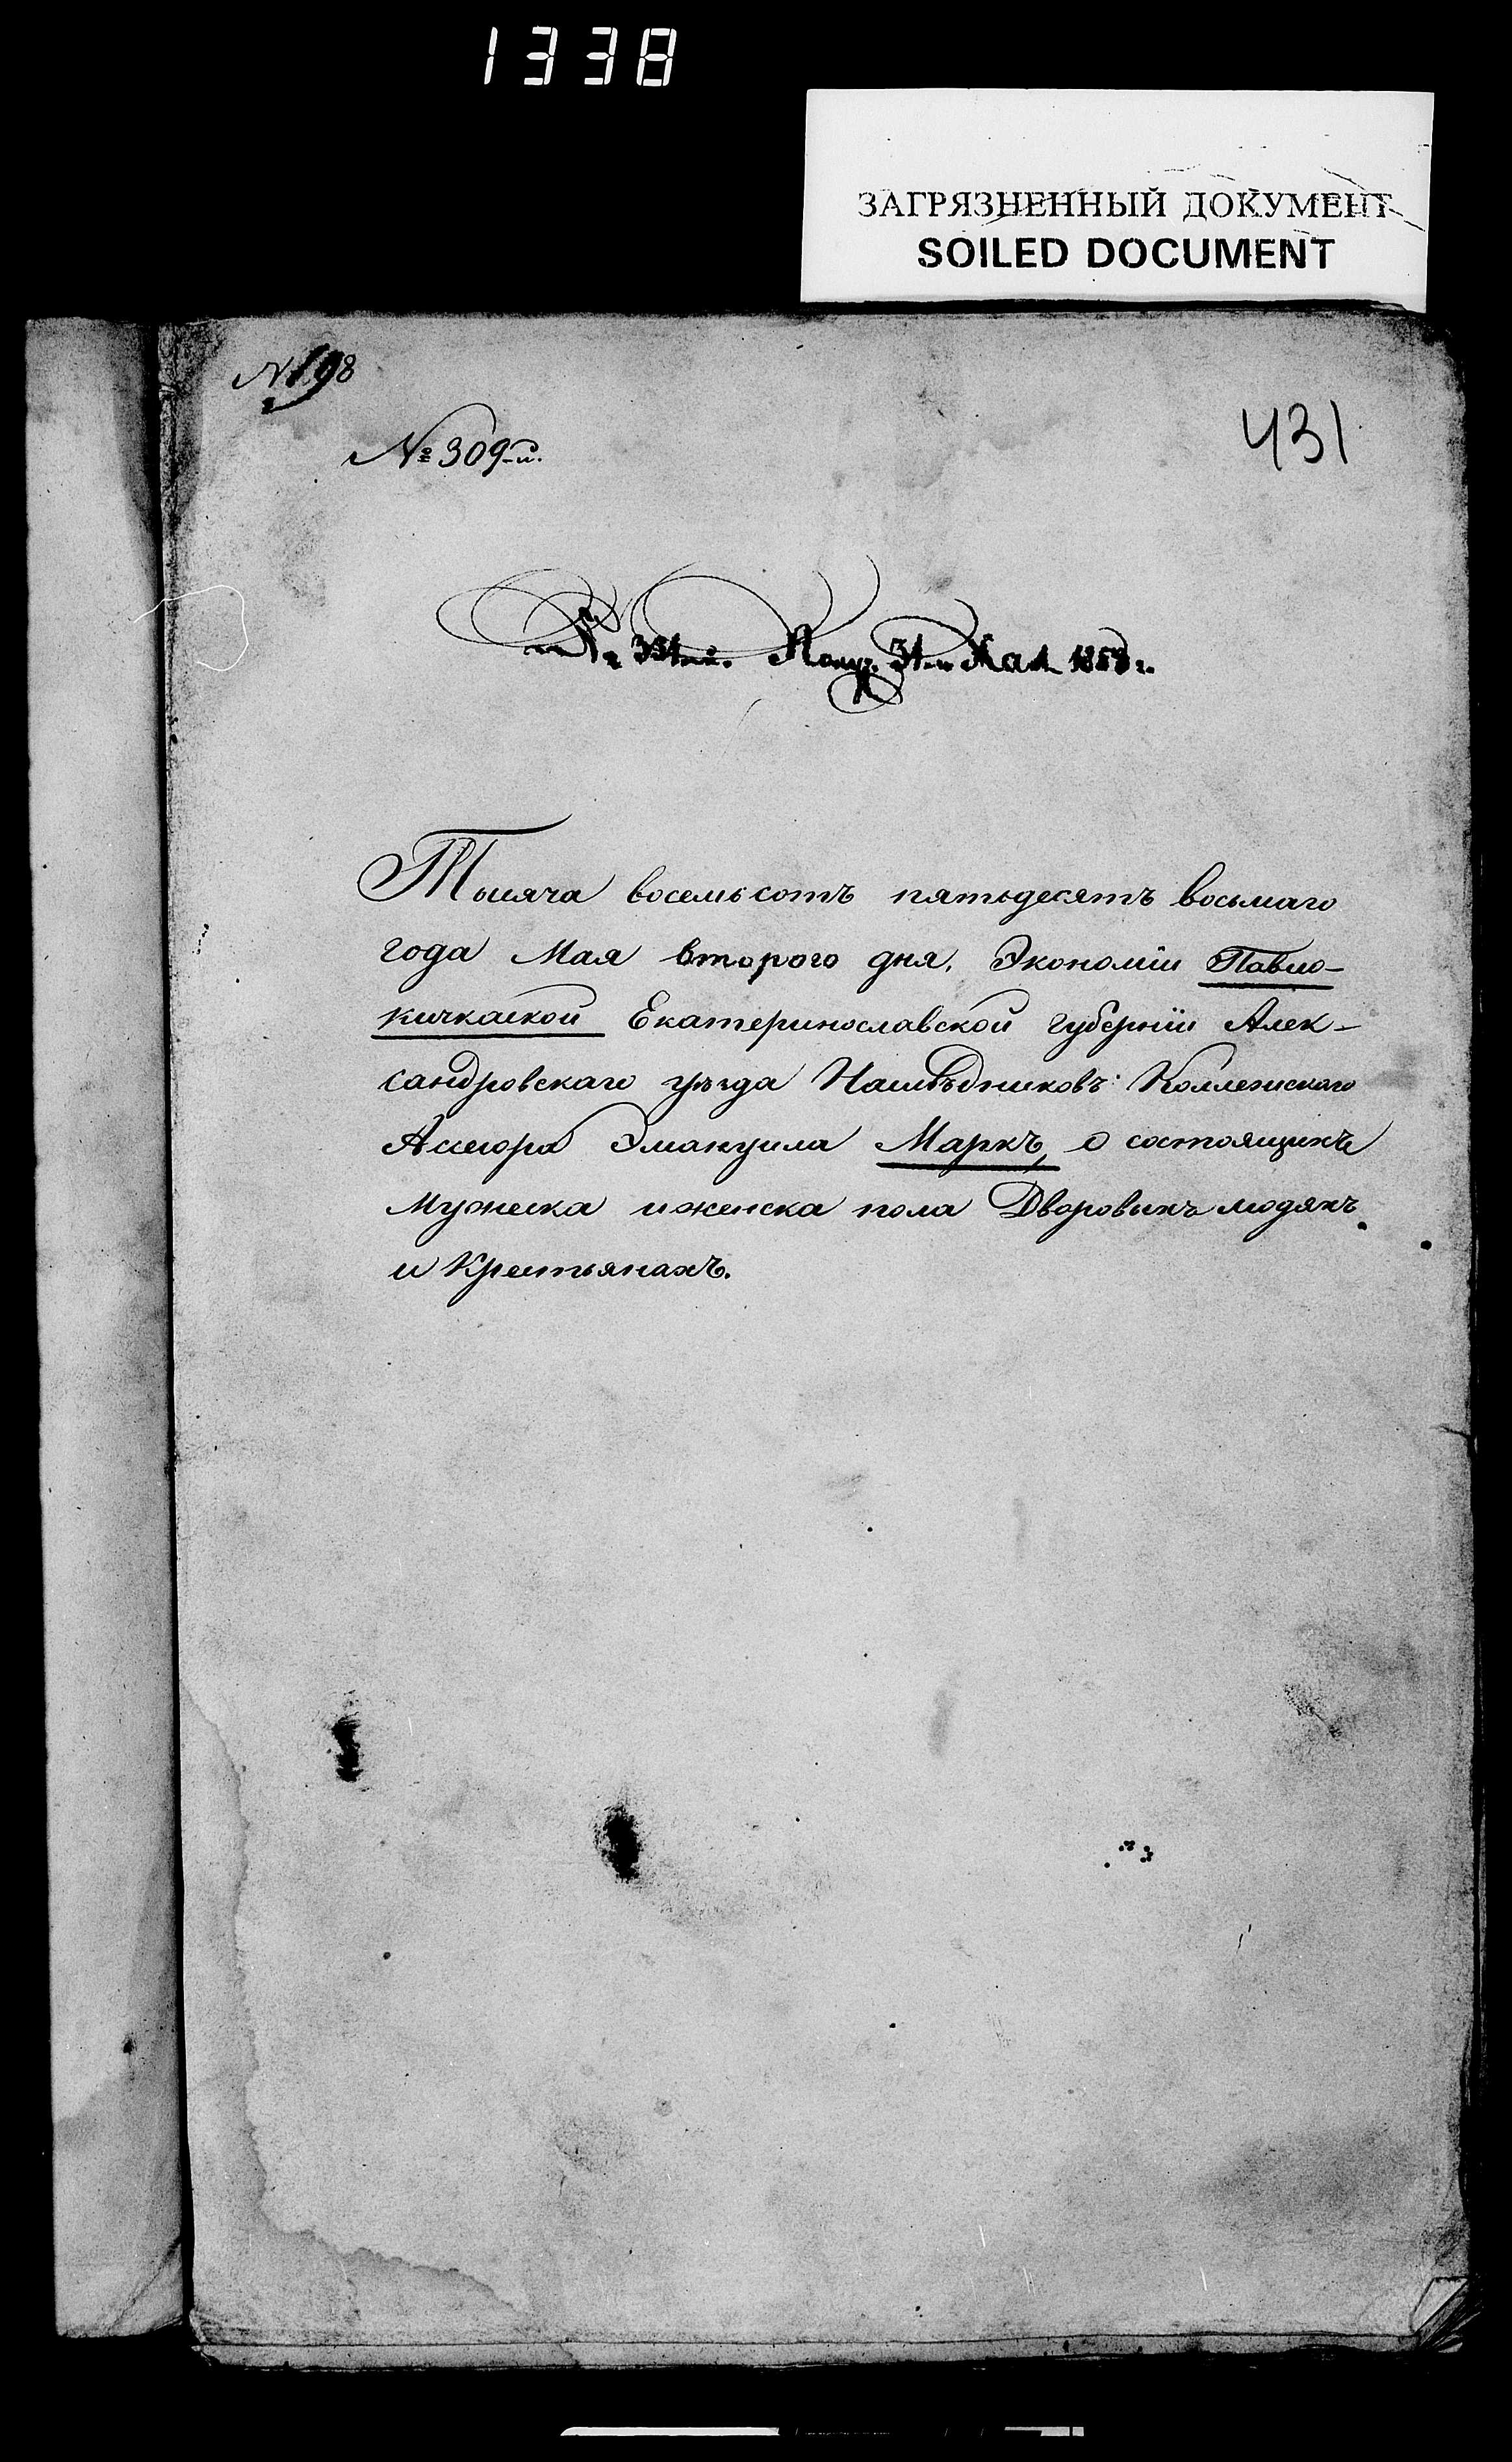 1338
ЗАГРЯЗНЕННЫЙ ДОКУМЕНТ
SOILED DOCUMENT
№ 198
№ 309-й.
431
№ 331-й. Получ. 31-го Мая 1858 г.
Тысяча восемьсотъ пятьдесятъ восьмаго
года Мая второго дня. Экономіи Павло-
кичкаской Екатеринославской губерніи Алек-
сандровскаго уѣзда Наслѣдниковъ Коллежскаго
Ассесора Эмануила Маркъ, о состоящихъ
мужеска и женска пола Дворовыхъ людяхъ
и Крестьянахъ.